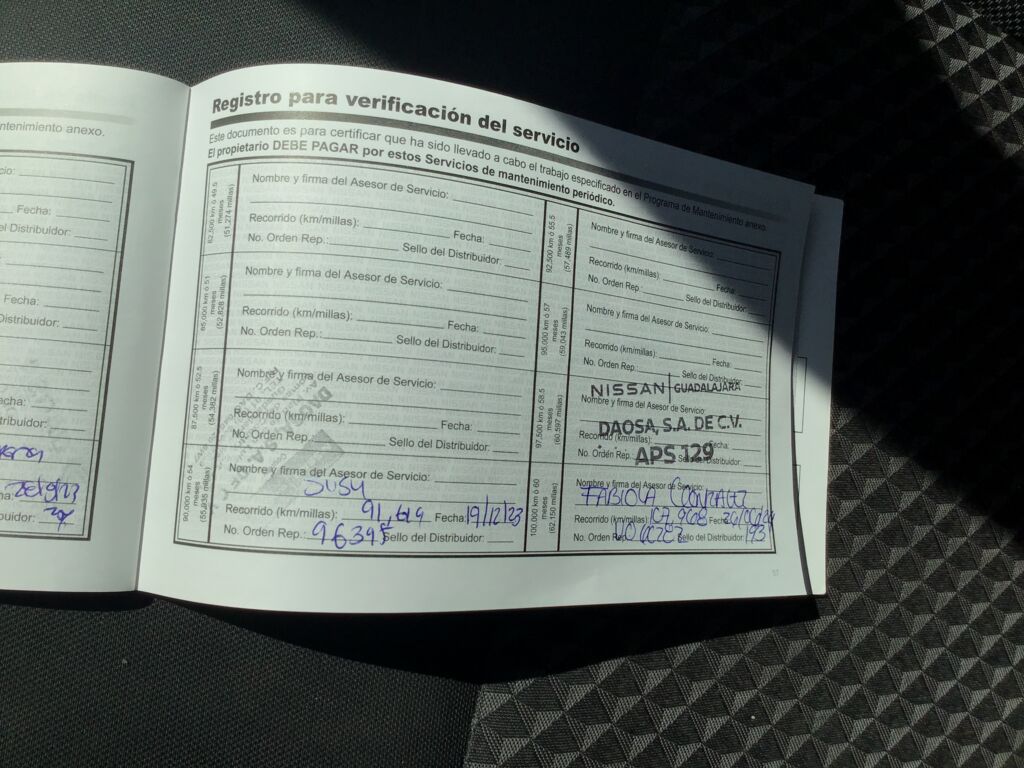 ntenimiento anexo.
cio:
Fecha:
Distribuidor:
Fecha:
Distribuidor:
echa:
tribuidor:
buidor:
Registro para verificación del servicio
Este documento es para certificar que ha sido llevado a cabo el trabajo especificado en el Programa de Mantenimiento anexo.
El propietario DEBE PAGAR por estos Servicios de mantenimiento periódico.
82,500 km ó 49.5
meses
(51,274 millas)
Nombre y firma del Asesor de Servicio:
Recorrido (km/millas): Fecha:
No. Orden Rep.: Sello del Distribuidor:
85,000 km ó 51
meses
(52,828 millas)
Nombre y firma del Asesor de Servicio:
Recorrido (km/millas): Fecha:
No. Orden Rep.: Sello del Distribuidor:
87,500 km ó 52.5
meses
(54,382 millas)
Nombre y firma del Asesor de Servicio:
Recorrido (km/millas): Fecha:
No. Orden Rep.: Sello del Distribuidor:
90,000 km ó 54
meses
(55,935 millas)
Nombre y firma del Asesor de Servicio:
SUSY
Recorrido (km/millas): 91,619 Fecha: 19/12/23
No. Orden Rep.: 96395 Sello del Distribuidor:
92,500 km ó 55.5
meses
(57,489 millas)
Nombre y firma del Asesor de Servicio:
Recorrido (km/millas): Fecha:
No. Orden Rep.: Sello del Distribuidor:
95,000 km ó 57
meses
(59,043 millas)
Nombre y firma del Asesor de Servicio:
Recorrido (km/millas): Fecha:
No. Orden Rep.: Sello del Distribuidor:
NISSAN GUADALAJARA
97,500 km ó 58.5
meses
(60,597 millas)
Nombre y firma del Asesor de Servicio:
DAOSA, S.A. DE C.V.
Recorrido (km/millas): Fecha:
No. Orden Rep. Sello del Distribuidor:
APS 129
100,000 km ó 60
meses
(62,150 millas)
Nombre y firma del Asesor de Servicio:
FABIOLA GONZALEZ
Recorrido (km/millas) Fecha
No. Orden Rep. Sello del Distribuidor:
57